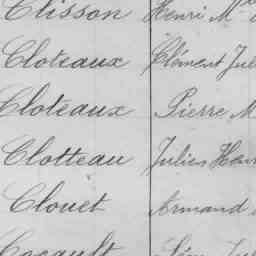 Clisson Henri M
Cloteaux Clément Jul
Cloteaux Pierre M
Clotteau Jules Hen
Clouet Armand
Cocault